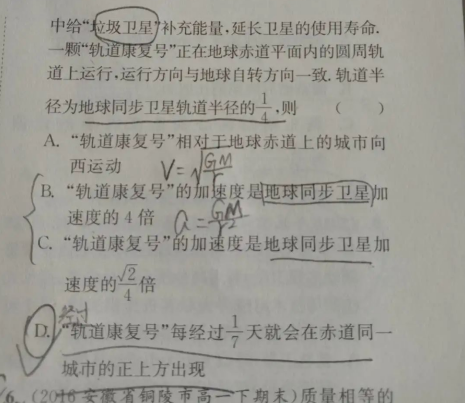 中给“垃圾卫星”补充能量,延长卫星的使用寿命.
一颗“轨道康复号”正在地球赤道平面内的圆周轨
道上运行,运行方向与地球自转方向一致.轨道半
径为地球同步卫星轨道半径的1/4,则 ( )
A. “轨道康复号”相对于地球赤道上的城市向
西运动 V=√(GM/r)
B. “轨道康复号”的加速度是地球同步卫星加
速度的 4 倍 a=GM/r²
C. “轨道康复号”的加速度是地球同步卫星加
速度的√2/4倍
经过
D. “轨道康复号”每经过1/7天就会在赤道同一
城市的正上方出现
6. (2016安徽省铜陵市高一下期末)质量相等的